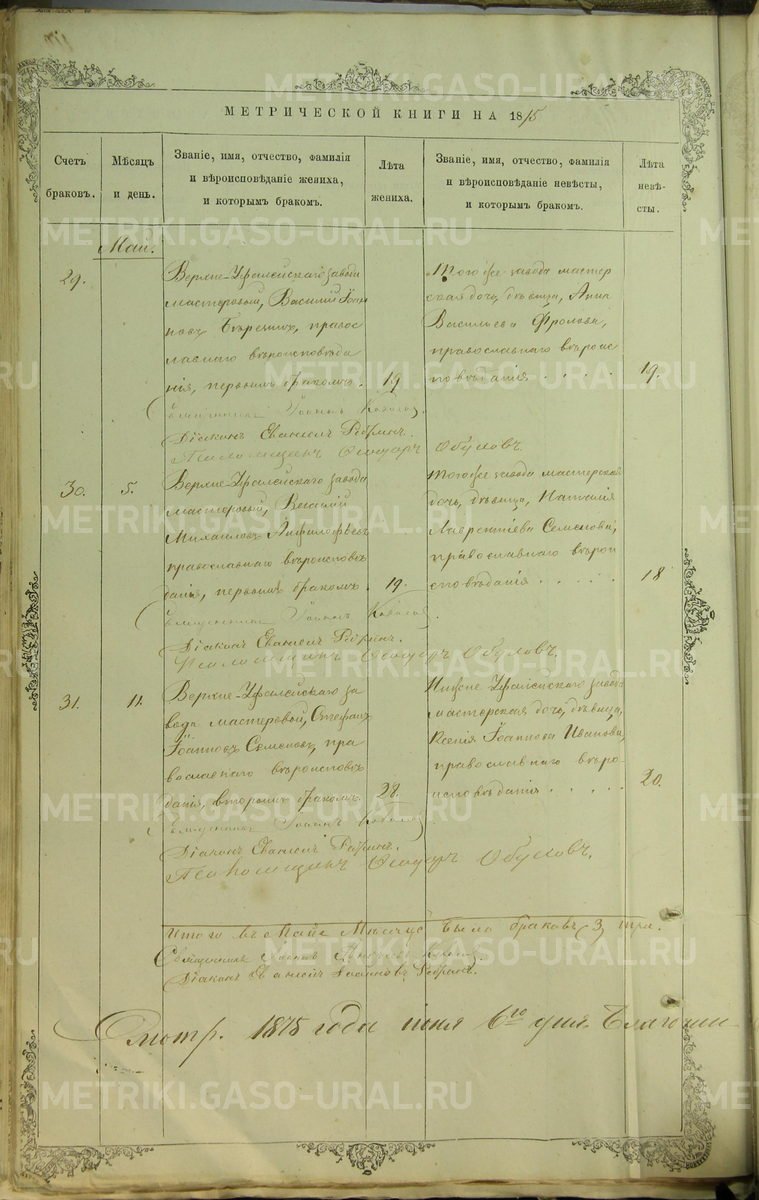 МЕТРИЧЕСКОЙ КНИГИ НА 1875
Счетъ браковъ.
Мѣсяцъ и день.
Званіе, имя, отчество, фамилія
и вѣроисповѣданіе жениха,
и которымъ бракомъ.
Лѣта жениха.
Званіе, имя, отчество, фамилія
и вѣроисповѣданіе невѣсты,
и которымъ бракомъ.
Лѣта невѣ-
сты.
Маи.
29.
Верхне-Уфалейскаго завода
мастеровый, Василий Іоан
новъ правос
лавнаго вѣроисповѣда
нія, первымъ бракомъ. 19
Тогоже завода мастер
ская дочь, дѣвица, Анна
Васильева Фролова,
православнаго вѣроис
повѣданія . . . . . 19.
Священникъ Іоаннъ
Діаконъ Евгений
Псаломщикъ Обуховъ.
30. 5.
Верхне-Уфалейскаго завода
мастеровый, Василий
Михаиловъ
православнаго вѣроисповѣ
данія, первымъ бракомъ. 19.
Тогоже завода мастерская
дочь, дѣвица, Наталія
Лаврентіева Семенова,
православнаго вѣрои
сповѣданія . . . . . 18
Священникъ Іоаннъ
Діаконъ
Псаломщикъ Обуховъ.
31. 11.
Верхне-Уфалейскаго за
вода мастеровый, Стефанъ
Іоанновъ Семеновъ, пра
вославнаго вѣроисповѣ
данія, вторымъ бракомъ. 28.
Нижне Уфалейскаго завода
мастерская дочь, дѣвица,
Ксенія Іоаннова Иванова,
православнаго вѣро
исповѣданія . . . . . 20.
Священникъ Іоаннъ
Діаконъ
Псаломщикъ Обуховъ.
Итого въ Маѣ Мѣсяцѣ было браковъ 3, три.
Священникъ Іоаннъ
Діаконъ Іоанновъ
Смотр. 1875 года іюня 6го дня Благочин
METRIKI.GASO-URAL.RU